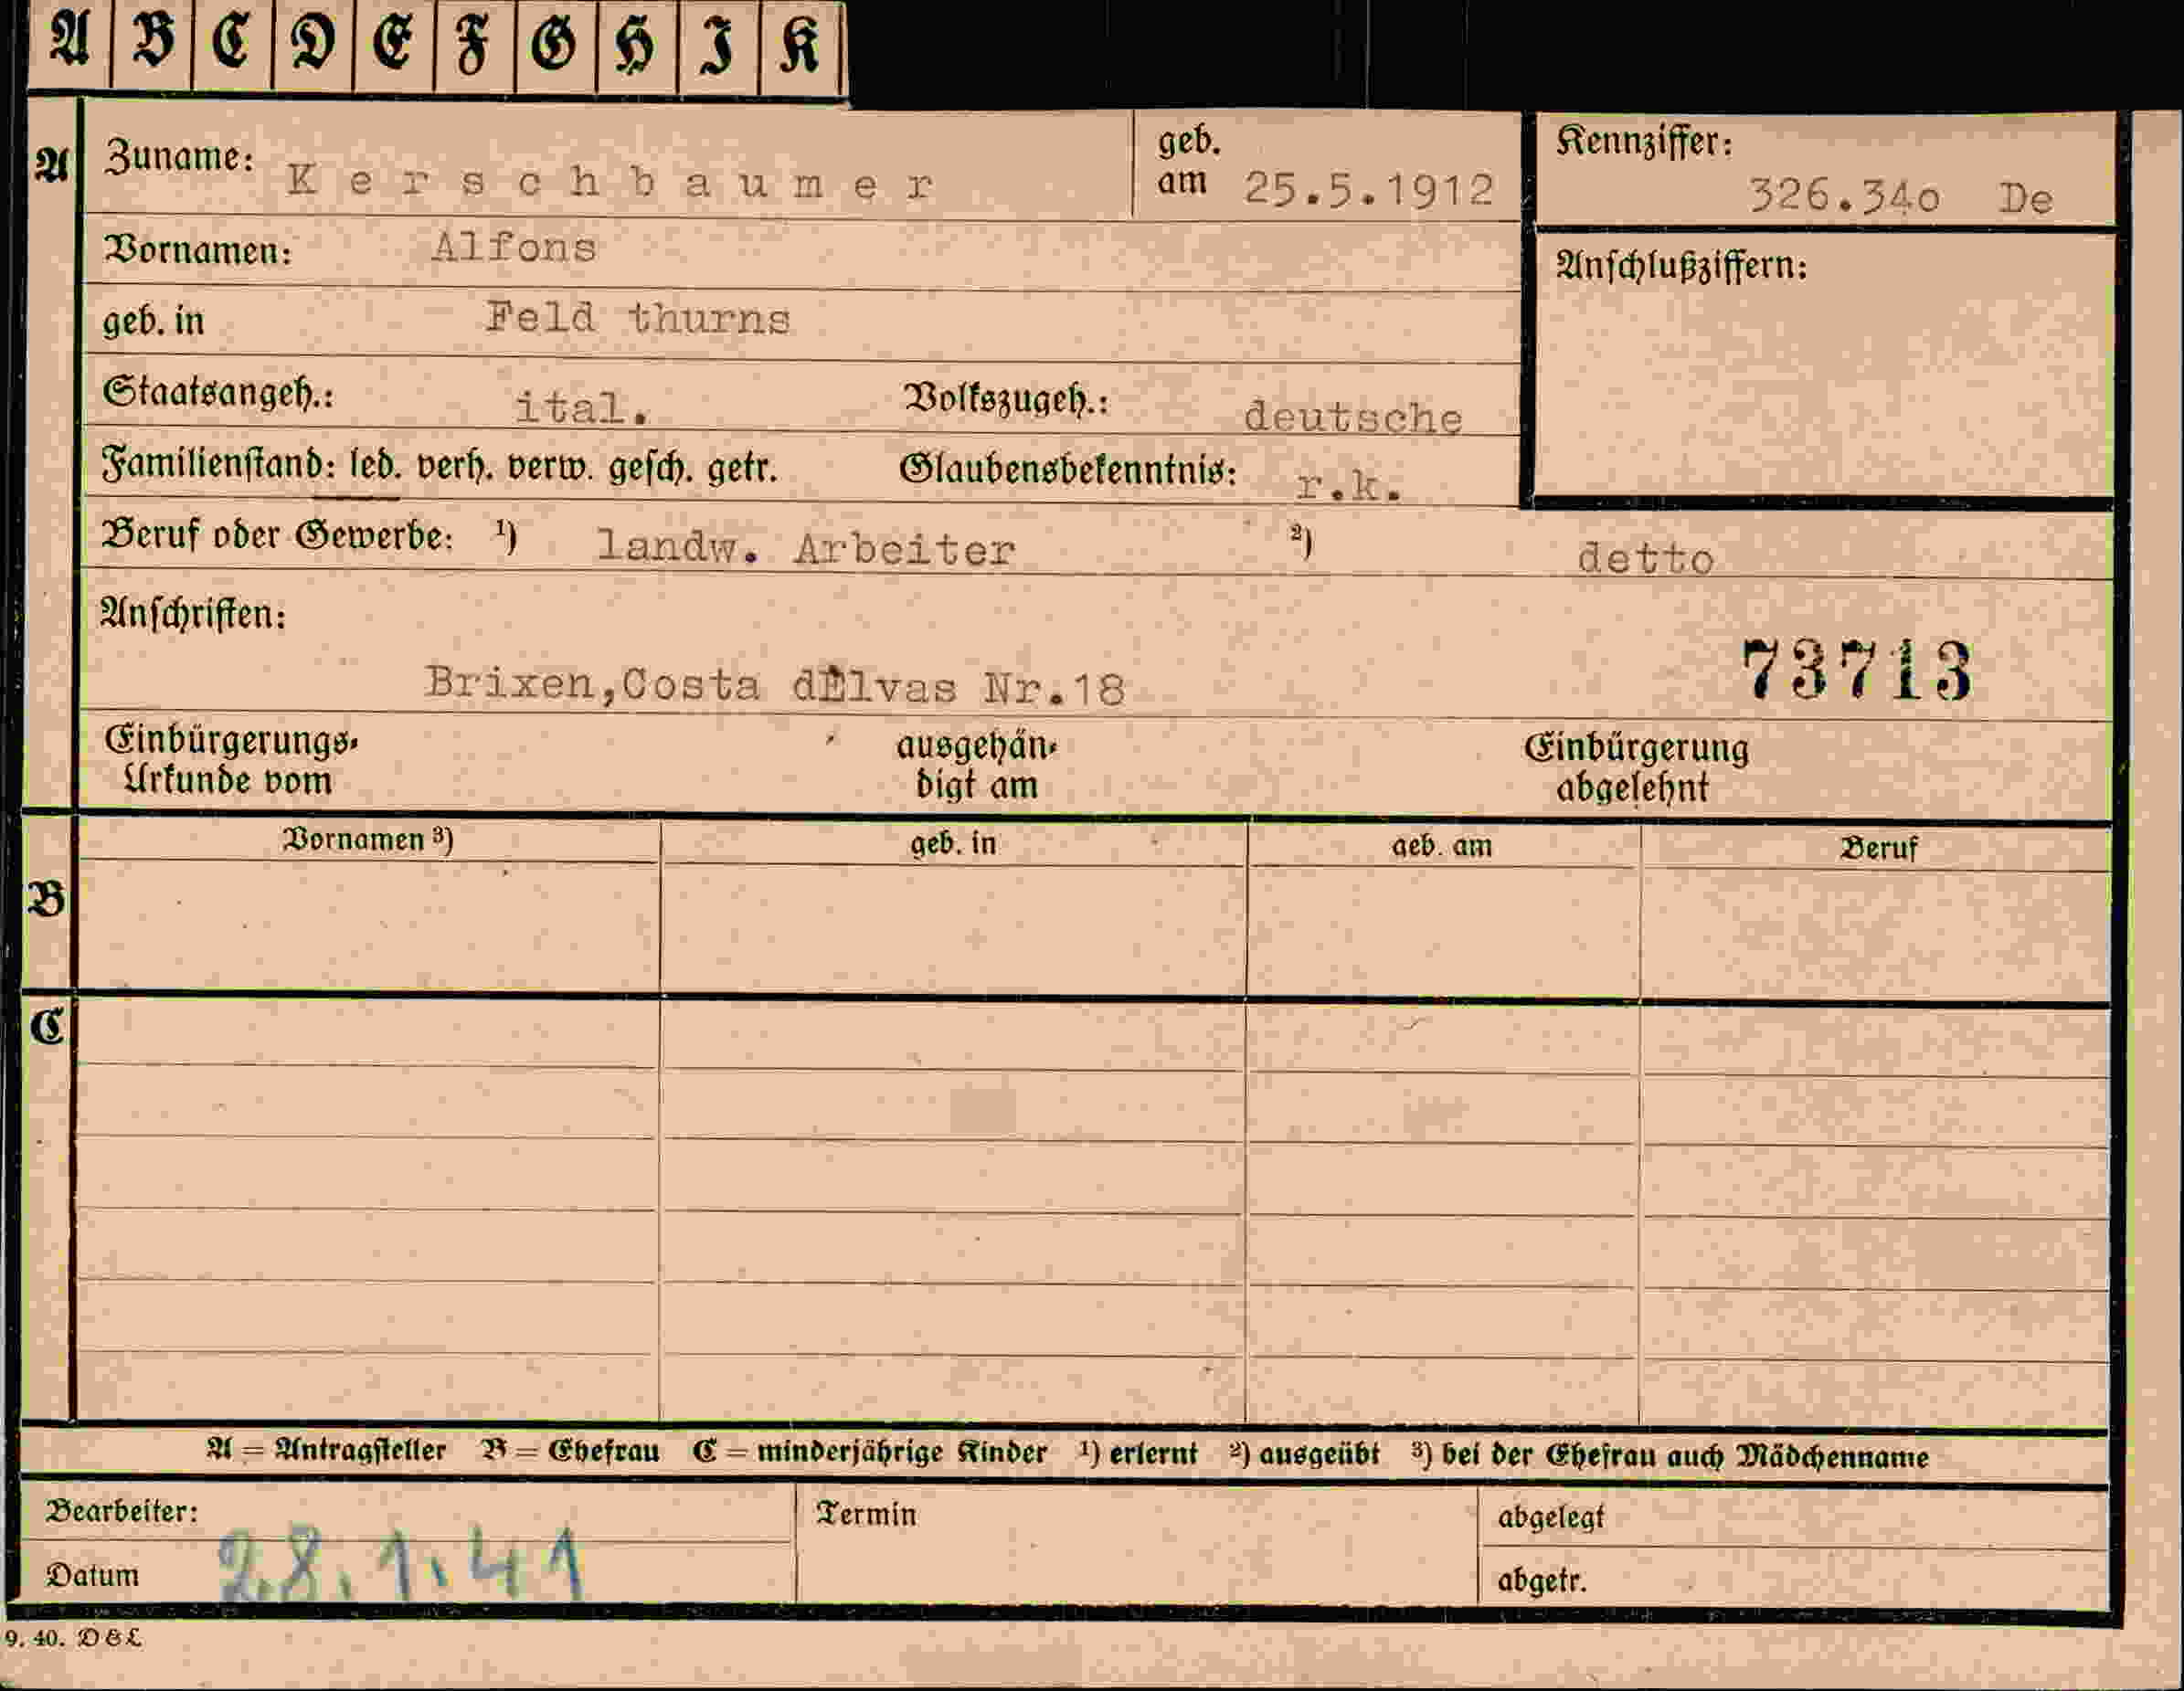 A B C D E F G H I K
A Zuname: Kerschbaumer geb. am 25.5.1912 Kennziffer: 326.34o De
Vornamen: Alfons Anschlußziffern:
geb. in Feld thurns
Staatsangeh.: ital. Volkszugeh.: deutsche
Familienstand: led. verh. verw. gesch. getr. Glaubensbekenntnis: r.k.
Beruf oder Gewerbe: 1) landw. Arbeiter 2) detto
Anschriften:
Brixen,Costa dElvas Nr.18 73713
Einbürgerungs- ausgehän- Einbürgerung
Urkunde vom digt am abgelehnt
Vornamen 3) geb. in geb. am Beruf
B
C
A = Antragsteller B = Ehefrau C = minderjährige Kinder 1) erlernt 2) ausgeübt 3) bei der Ehefrau auch Mädchenname
Bearbeiter: Termin abgelegt
Datum 28.1.41 abgetr.
9. 40. D & L